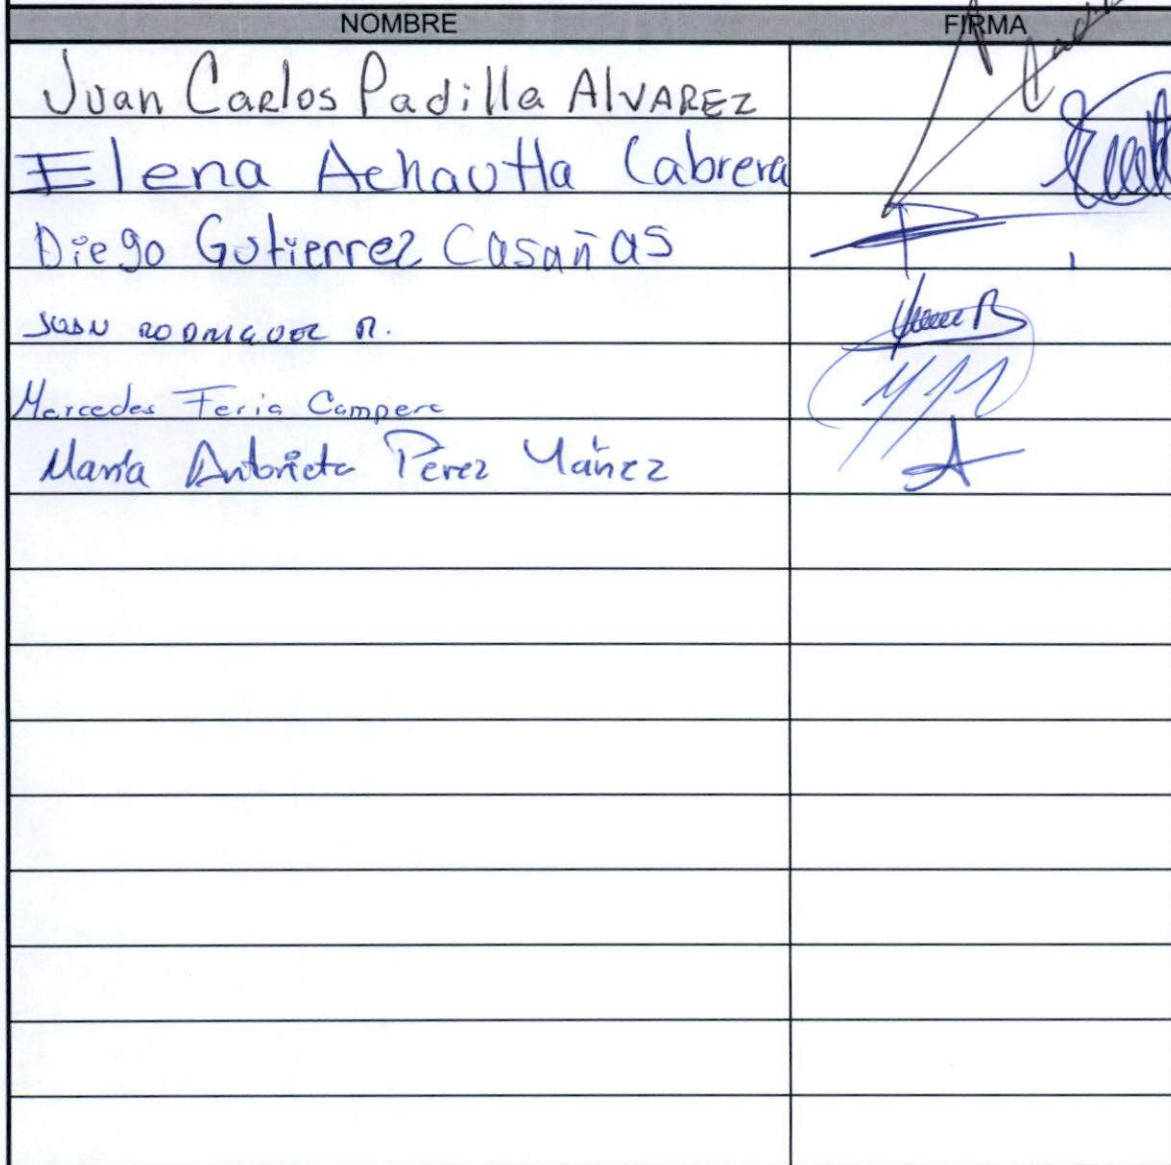 NOMBRE FIRMA
Juan Carlos Padilla ALVAREZ
Elena Achautla Cabrera
Diego Gutierrez Casañas
JUAN RODRIGUEZ R.
Mercedes Feria Campero
María Antonieta Pérez Yáñez